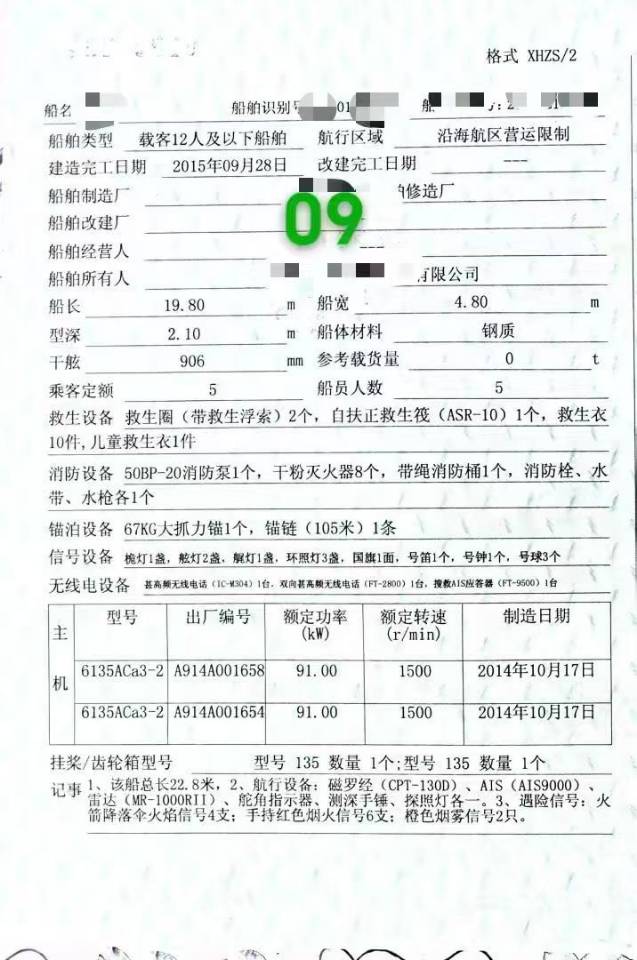 格式 XHZS/2
船名 船舶识别号 01
船舶类型 载客12人及以下船舶 航行区域 沿海航区营运限制
建造完工日期 2015年09月28日 改建完工日期 ---
船舶制造厂 修造厂
09
船舶改建厂
船舶经营人 ---
船舶所有人 有限公司
船长 19.80 m 船宽 4.80 m
型深 2.10 m 船体材料 钢质
干舷 906 mm 参考载货量 0 t
乘客定额 5 船员人数 5
救生设备 救生圈（带救生浮索）2个，自扶正救生筏（ASR-10）1个，救生衣
10件,儿童救生衣1件
消防设备 50BP-20消防泵1个，干粉灭火器8个，带绳消防桶1个，消防栓、水
带、水枪各1个
锚泊设备 67KG大抓力锚1个，锚链（105米）1条
信号设备 桅灯1盏，舷灯2盏，艉灯1盏，环照灯3盏，国旗1面，号笛1个，号钟1个，号球3个
无线电设备 甚高频无线电话（IC-M304）1台，双向甚高频无线电话（FT-2800）1台，搜救AIS应答器（FT-9500）1台
主机 型号 出厂编号 额定功率(kW) 额定转速(r/min) 制造日期
6135ACa3-2 A914A001658 91.00 1500 2014年10月17日
6135ACa3-2 A914A001654 91.00 1500 2014年10月17日
挂桨/齿轮箱型号 型号 135 数量 1个;型号 135 数量 1个
记事 1、该船总长22.8米，2、航行设备：磁罗经（CPT-130D）、AIS（AIS9000）、
雷达（MR-1000RII）、舵角指示器、测深手锤、探照灯各一。3、遇险信号：火
箭降落伞火焰信号4支；手持红色烟火信号6支；橙色烟雾信号2只。